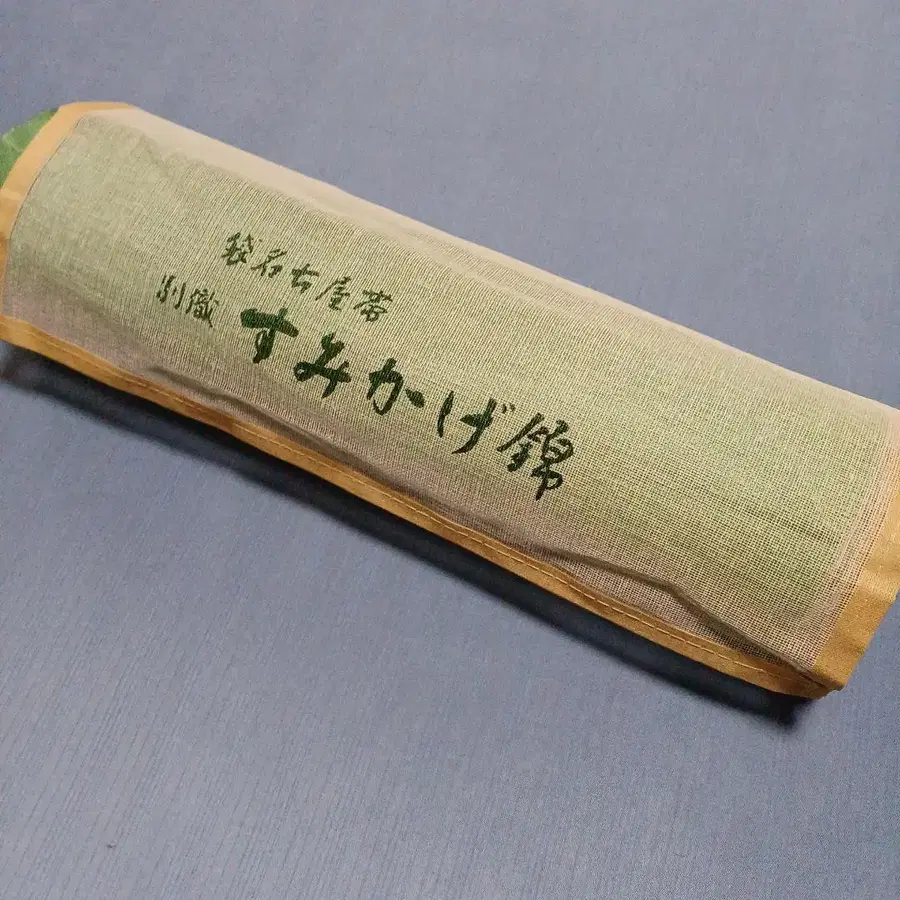 袋名古屋帯
別織 すみかげ錦